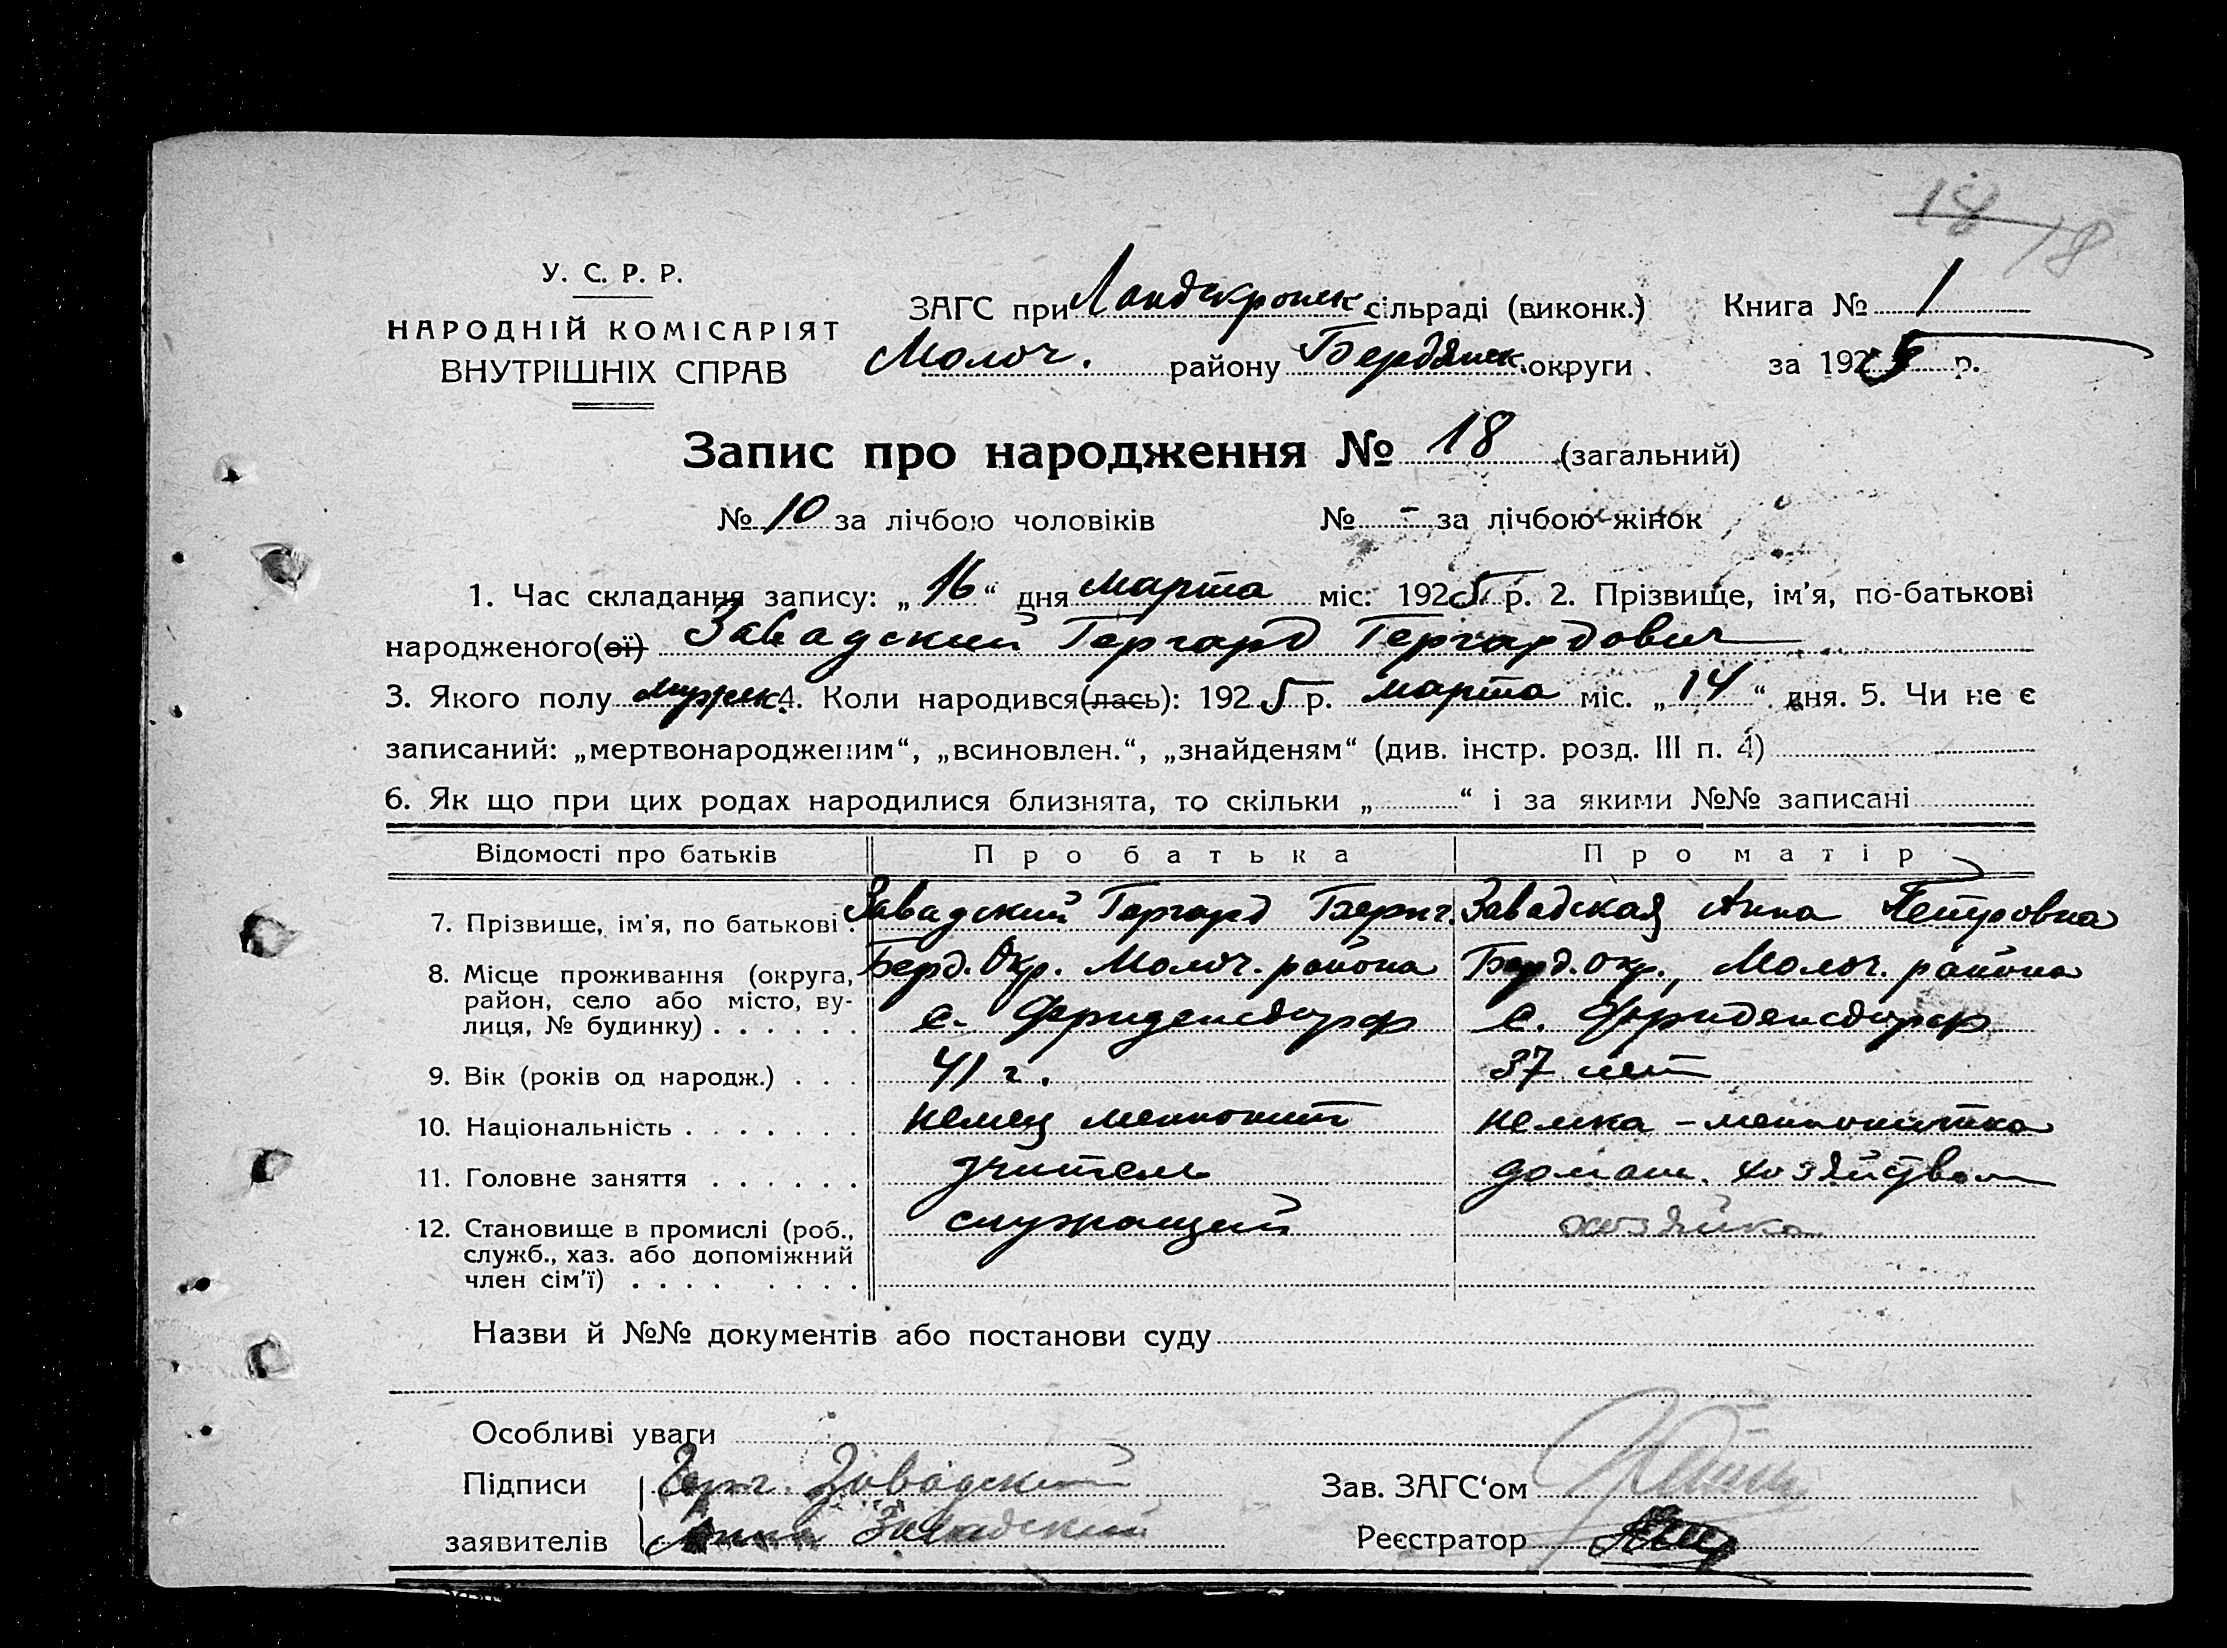 18 18
У. С. Р. Р.
НАРОДНІЙ КОМІСАРІЯТ
ВНУТРІШНІХ СПРАВ
ЗАГС при Ландскронск. сільраді (виконк.) Книга № 1
Молоч. району Бердянск. округи за 1925 р.
Запис про народження № 18 (загальний)
№ 10 за лічбою чоловіків № - за лічбою жінок
1. Час складання запису: „16“ дня марта міс. 1925 р. 2. Прізвище, ім'я, по-батькові
народженого(ої) Завадский Гергард Гергардович
3. Якого полу мужск. 4. Коли народився(лась): 1925 р. марта міс. „14“ дня. 5. Чи не є
записаний: „мертвонародженим“, „всиновлен.“, „знайденям“ (див. інстр. розд. III п. 4)
6. Як що при цих родах народилися близнята, то скільки „ “ і за якими №№ записані
Відомості про батьків Про батька Про матір
7. Прізвище, ім'я, по батькові . Завадский Гергард Завадская Анна Петровна
8. Місце проживання (округа, Берд. Окр. Молоч. района Берд. окр., Молоч. района
район, село або місто, ву-
лиця, № будинку) . . . . . . с. Фриденсдорф с. Фриденсдорф
9. Вік (років од народж.) . . . 41 г. 37 лет
10. Національність . . . . . . . немец меннонит немка - меннонитка
11. Головне заняття . . . . . . учитель домаш. хозяйством
12. Становище в промислі (роб., служащий хозяйка
служб., хаз. або допоміжний
член сім'ї) . . . . . . . .
Назви й №№ документів або постанови суду
Особливі уваги
Підписи Герг. Завадский Зав. ЗАГС‘ом
заявителів Анна Завадский Реєстратор